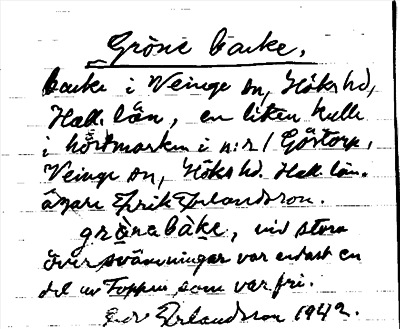 Gröne backe.
backe i Veinge sn, Höks hd,
Hall. län, en liten kulle
i hörtmarken i n:r 1 Göstorp,
Veinge sn, Höks hd. Hall. län.
ägare Erik Erlandsson.
grönabàke, vid stora
översvämningar var endast en
del av Toppen som var fri.
Erlandsson 1942.